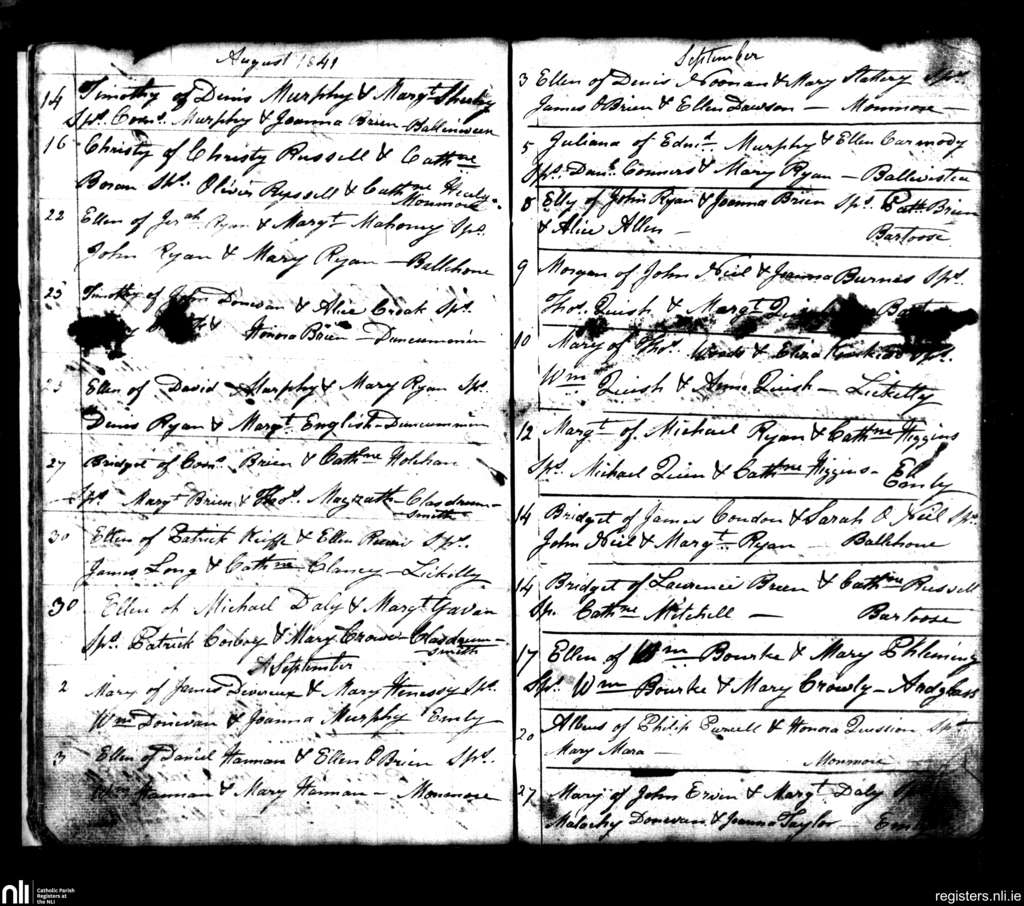 August 1841
14 Timothy of Denis Murphy & Margt. Sheehy
Sps. Corns. Murphy & Joanna Brien Ballinween
16 Christy of Christy Russell & Cathne
Boran Sps. Oliver Russell & Cathne Healy
Monmore
22 Ellen of Jerah Ryan & Margt. Mahony Sps.
John Ryan & Mary Ryan – Ballehone
23 Timothy of John Donovan & Alice Crook Sps.
& Honora Brien – Duncummin
23 Ellen of David Murphy & Mary Ryan Sps.
Denis Ryan & Margt. English – Duncummin
27 Bridget of Corns. Brien & Cathne Holohan
Sps. Margt Brien & Thos. Magrath – Glasdrum-
smith
30 Ellen of Patrick Keiffe & Ellen Sps.
James Long & Cathne Clancy – Lickelly
30 Ellen of Michael Daly & Margt Gavan
Sps. Patrick Conboy & Mary Crowe Glasdrum-
smith
September
2 Mary of James Devereux & Mary Henessy Sps.
Wm Donovan & Joanna Murphy Emly
3 Ellen of Daniel Hannan & Ellen O Brien Sps.
Wm Hannan & Mary Hannan – Monmore
September
3 Ellen of Denis Noonan & Mary Slattery Sps.
James O Brien & Ellen Dawson – Monmore –
5 Juliana of Edmd. Murphy & Ellen Carmody
Sps. Danl. Conners & Mary Ryan – Ballwistea
8 Elly of John Ryan & Joanna Brien Sps. Patt. Brien
& Alice Allen – Bartoose
9 Morgan of John Neil & Joanna Burnes Sps.
Thos. Quish & Margt
10 Mary of Thos. Woods & Eliza Sps.
Wm Quish & Anne Quish – Lickelly
12 Margt. of Michael Ryan & Cathne Higgins
Sps. Michael Quin & Cathne Higgins – Emly
14 Bridget of James Condon & Sarah O Neil Sps
John Neil & Margt. Ryan – Ballehone
14 Bridget of Laurence Brien & Cathne Russell
Sp. Cathne Mitchell – Bartoose
17 Ellen of Wm Bourke & Mary Phleming
Sps. Wm Bourke & Mary Crowly – Ardglass
20 Albeus of Philip Purcell & Honora Sps
Mary Mara – Monmore
27 Mary of John Ervin & Margt. Daly Sps
Malachy Donovan & Joanna Taylor – Emly
nli Catholic Parish
Registers at
the NLI
registers.nli.ie